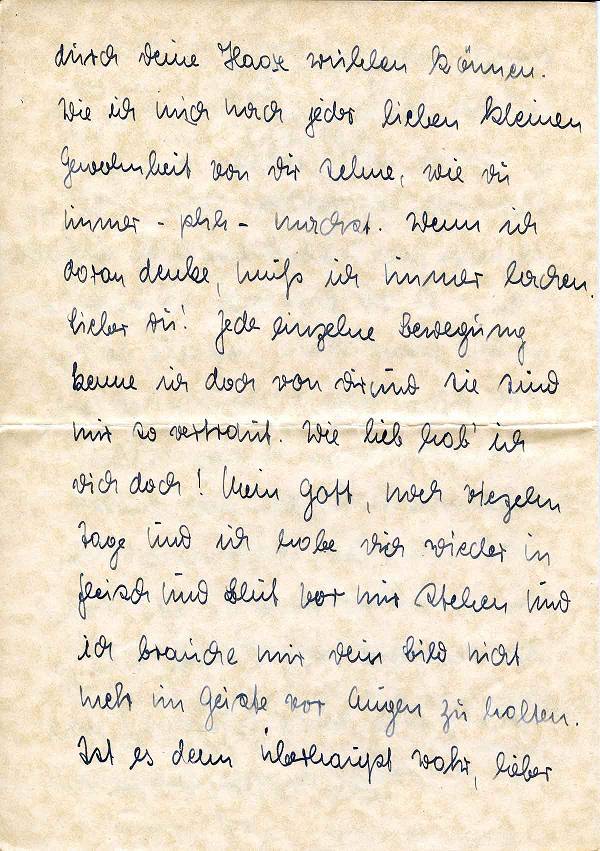 durch deine Haare wühlen können.
Wie ich mich nach jeder lieben kleinen
Gewohnheit von dir sehne, wie du
immer - phh - machst. Wenn ich
daran denke, muß ich immer lachen.
Lieber du! Jede einzelne Bewegung
kenne ich doch von dir und sie sind
mir so vertraut. Wie lieb hab' ich
dich doch! Mein Gott, noch vierzehn
Tage und ich habe dich wieder in
Fleisch und Blut vor mir stehen und
ich brauche mir dein Bild nicht
mehr im Geiste vor Augen zu halten.
Ist es denn überhaupt wahr, lieber